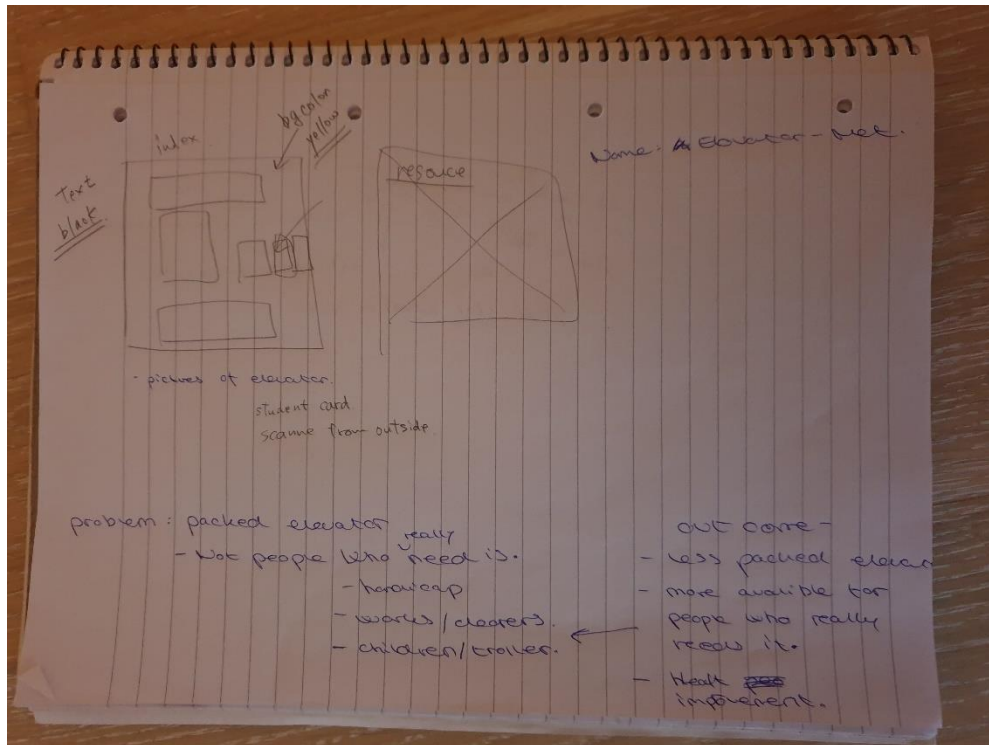 index
bg color
yellow
Text
black
resource
Name: Elevator - Net.
- pictures of elevator.
student card
scanne from outside
problem: packed elevator
- Not people who really need is.
- handicap
- works/cleaners.
- children/troller.
out come -
- Less packed elevat
- more avalible for
people who really
needs it.
- Healt
improvement.